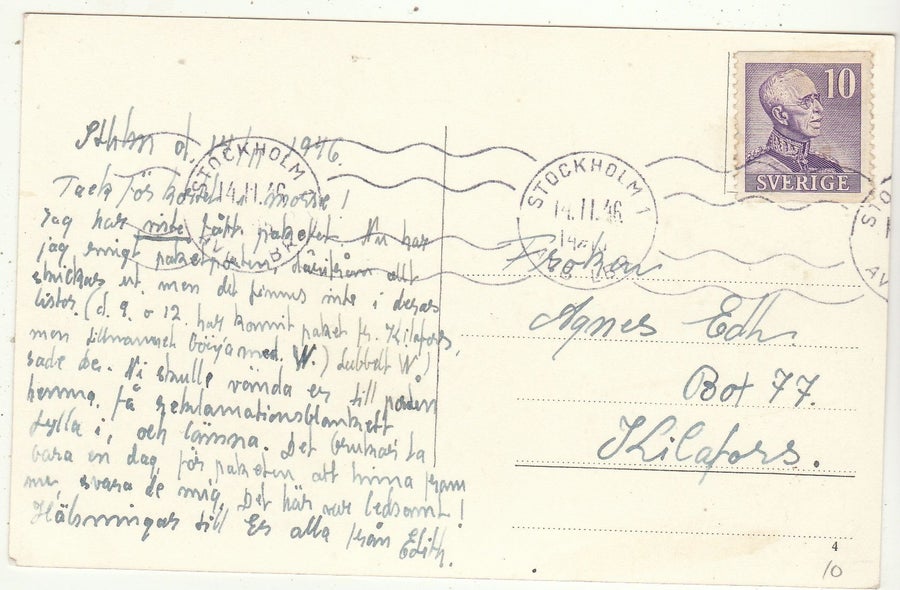 Sthlm d. 14/11 1946.
Tack för kortet i morse!
Jag har inte fått paketet. Nu har
jag ringt paketposten, därifrån allt
skickas ut, men det finnes inte i deras
listor. (d. 9. o 12 har kommit paket fr. Kilafors,
men tillnamnet börja med W.) Dubbelt W)
sade de. Ni skulle vända er till posten
hemma, få reklamationsblankett
fylla i, och lämna. Det brukar ta
bara en dag, för paketen att hinna fram
svara de mig. Det här var ledsamt!
Hälsningar till Er alla från Edith.
SVERIGE 10
STOCKHOLM 1
14.11.46
STOCKHOLM 1
14.11.46
Fröken
Agnes Edh
Box 77.
Kilafors.
4
10